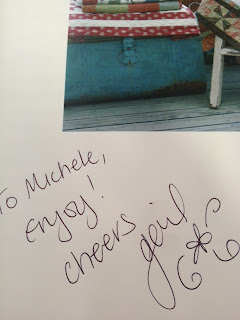 To Michele,
enjoy!
cheers